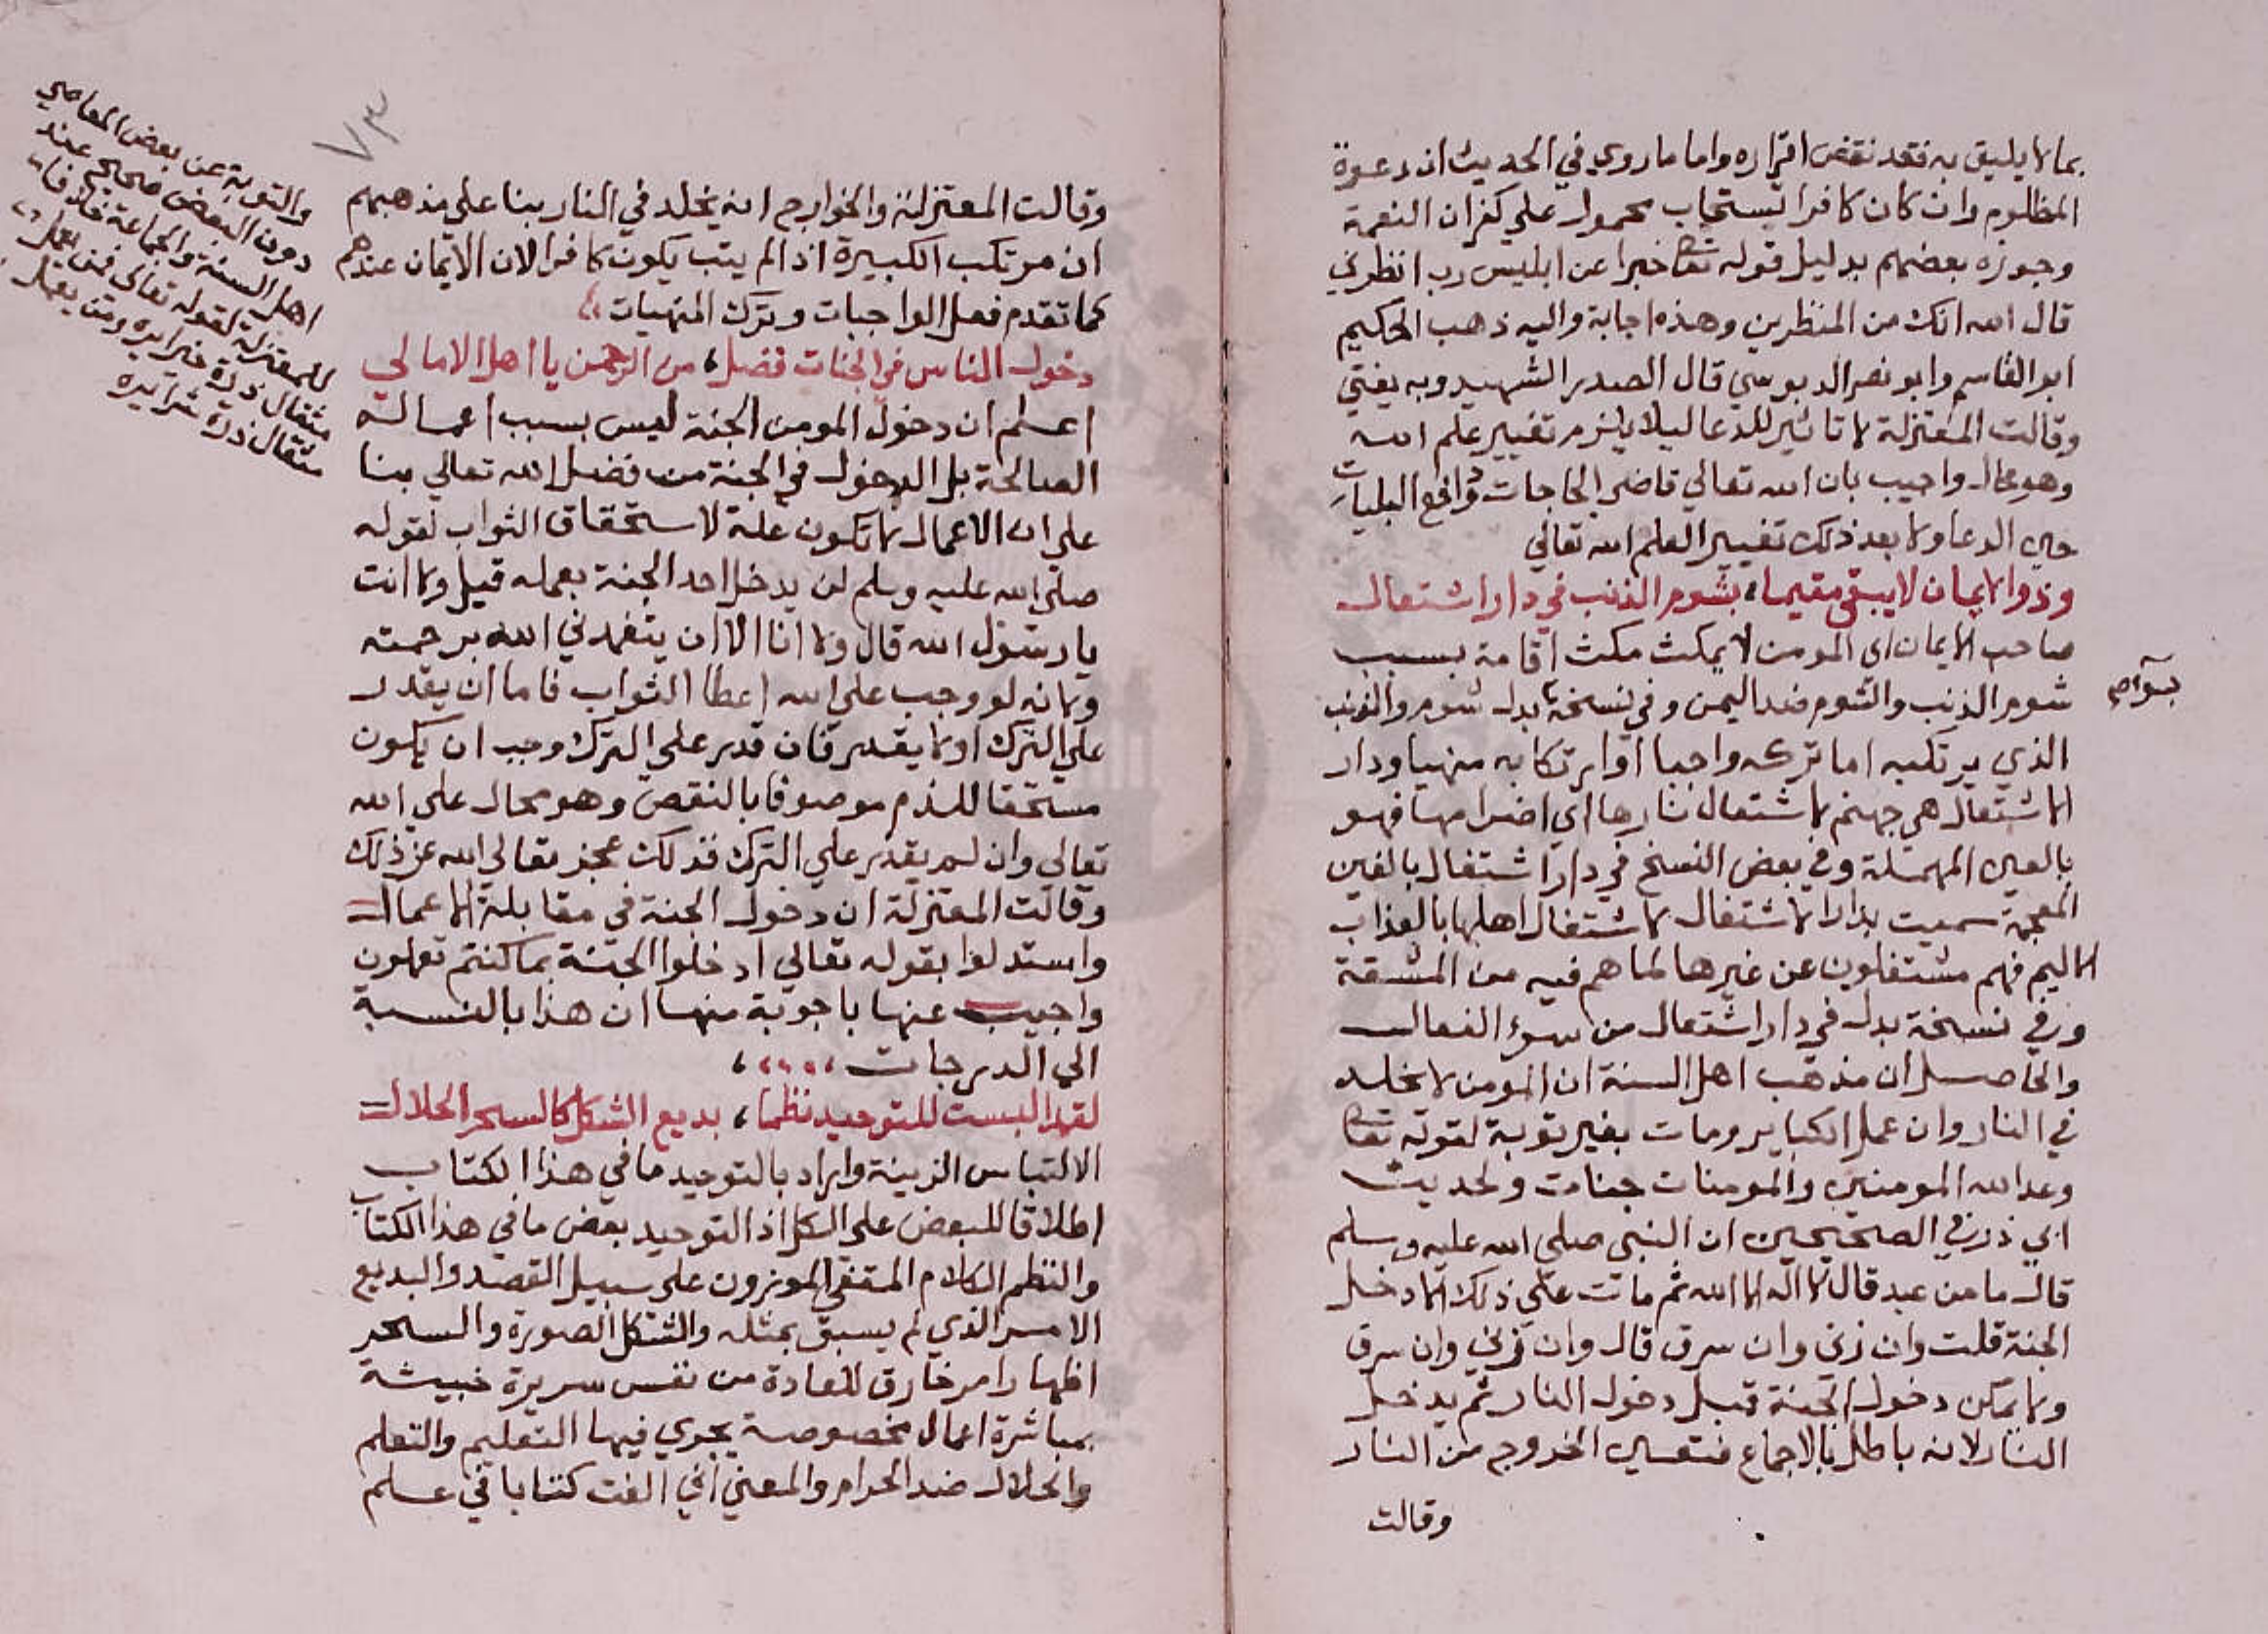 بما لا يليق به فقد نقض اقراره واما ما روي في الحديث ان دعوة
المظلوم وان كان كافرا تستجاب محمول علي كفران النعمة
وجوزه بعضهم بدليل قوله تعا خبرا عن ابليس رب انظرني
قال الله انك من المنظرين وهذه اجابة واليه ذهب الحكيم
ابو القاسم وابو نصر الدبوسي قال الصدر الشهيد وبه يفتي
وقالت المعتزلة لا تاثير للدعا ليلا يلزم تغيير علم الله
وهو محال واجيب بان الله تعالي قاضي الحاجات ودافع البليات
حين الدعا ولا بعد ذلك تغيير العلم الله تعالي
وذوا الايمان لا يبقي مقيما، بشوم الذنب في دار اشتعال
صاحب الايمان اي المومن لا يمكث مكث اقامة بسبب
شوم الذنب والشوم ضد اليمن وفي نسخة بدل شوم والذنب
بسوء صح
الذي يرتكبه اما تركه واجبا او ارتكابه منهيا ودار
الاشتعال هي جهنم لاشتعال نارها اي اضرامها فهو
بالعين المهملة وفي بعض النسخ في دار اشتغال بالغين
المعجمة سميت بدار الاشتغال لاشتغال اهلها بالعذاب
الاليم فهم مشتغلون عن غيرها لما هم فيه من المشقة
وفي نسخة بدل في دار اشتعال من سوء الفعال
والحاصل ان مذهب اهل السنة ان المومن لا يخلد
في النار وان عمل الكباير ومات بغير توبة لقوله تعا
وعد الله المومنين والمومنات جنات ولحديث
ابي ذر في الصحيحين ان النبي صلي الله عليه وسلم
قال ما من عبد قال لا اله الا الله ثم مات علي ذلك الا دخل
الجنة قلت وان زنى وان سرق قال وان زني وان سرق
ولا يمكن دخول الجنة قبل دخول النار ثم يدخل
النار لانه باطل بالاجماع فتعين الخروج من النار
وقالت
٧٣
وقالت المعتزلة والخوارج انه يخلد في النار بنا علي مذهبهم
ان مرتكب الكبيرة اذا لم يتب يكون كافرا لان الايمان عندهم
كما تقدم فعل الواجبات وترك المنهيات
دخول الناس في الجنات فضل، من الرحمن يا اهل الامالي
اعلم ان دخول المومن الجنة ليس بسبب اعماله
الصالحة بل الدخول في الجنة من فضل الله تعالي بنا
علي ان الاعمال لا تكون علة لاستحقاق الثواب لقوله
صلي الله عليه وسلم لن يدخل احد الجنة بعمله قيل ولا انت
يا رسول الله قال ولا انا الا ان يتغمدني الله برحمته
ولانه لو وجب علي الله اعطا الثواب فاما ان يقدر
علي الترك او لا يقدر فان قدر علي الترك وجب ان يكون
مستحقا للذم موصوفا بالنقص وهو محال علي الله
تعالي وان لم يقدر علي الترك فذلك عجز تعالي الله عن ذلك
وقالت المعتزلة ان دخول الجنة في مقابلة الاعمال
واستدلوا بقوله تعالي ادخلوا الجنة بما كنتم تعملون
واجيب عنها باجوبة منها ان هذا بالنسبة
الي الدرجات
لقد البست للتوحيد نظما، بديع الشكل كالسحر الحلال
الالتباس الزينة واراد بالتوحيد ما في هذا الكتاب
اطلاقا للبعض علي الكل اذ التوحيد بعض ما في هذا الكتاب
والنظم الكلام المقفي الموزون علي سبيل القصد والبديع
الامر الذي لم يسبق بمثله والشكل الصورة والسحر
اظهار امر خارق للعادة من نفس سريرة خبيثة
بمباشرة اعمال مخصوصة يجري فيها التعليم والتعلم
والحلال ضد الحرام والمعني اني الفت كتابا في علم
والتوبة عن بعض المعاصي
دون البعض صحيح عند
اهل السنة والجماعة خلافا
للمعتزلة لقوله تعالي فمن يعمل
مثقال ذرة خيرا يره ومن يعمل
مثقال ذرة شرا يره